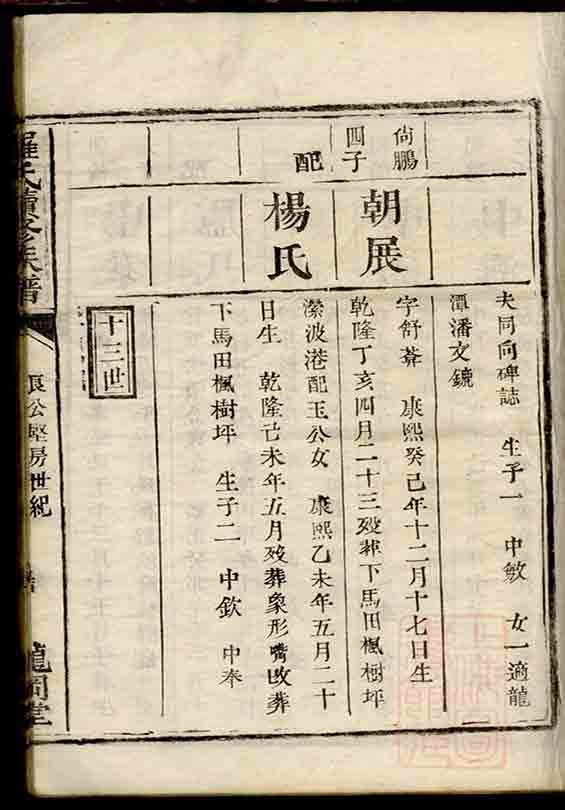 夫同向碑誌 生子一 中敏 女一適龍
潭潘文鑣
尚鵬
四子
朝展
字舒葊 康熙癸己年十二月十七日生
乾隆丁亥四月二十三歿葬下馬田楓樹坪
配
楊氏
潆波港配玉公女 康熙乙未年五月二十
日生 乾隆己未年五月歿葬象形嘴改葬
下馬田楓樹坪 生子二 中欽 中奉
十三世
羅氏續修族譜
公堅房世紀